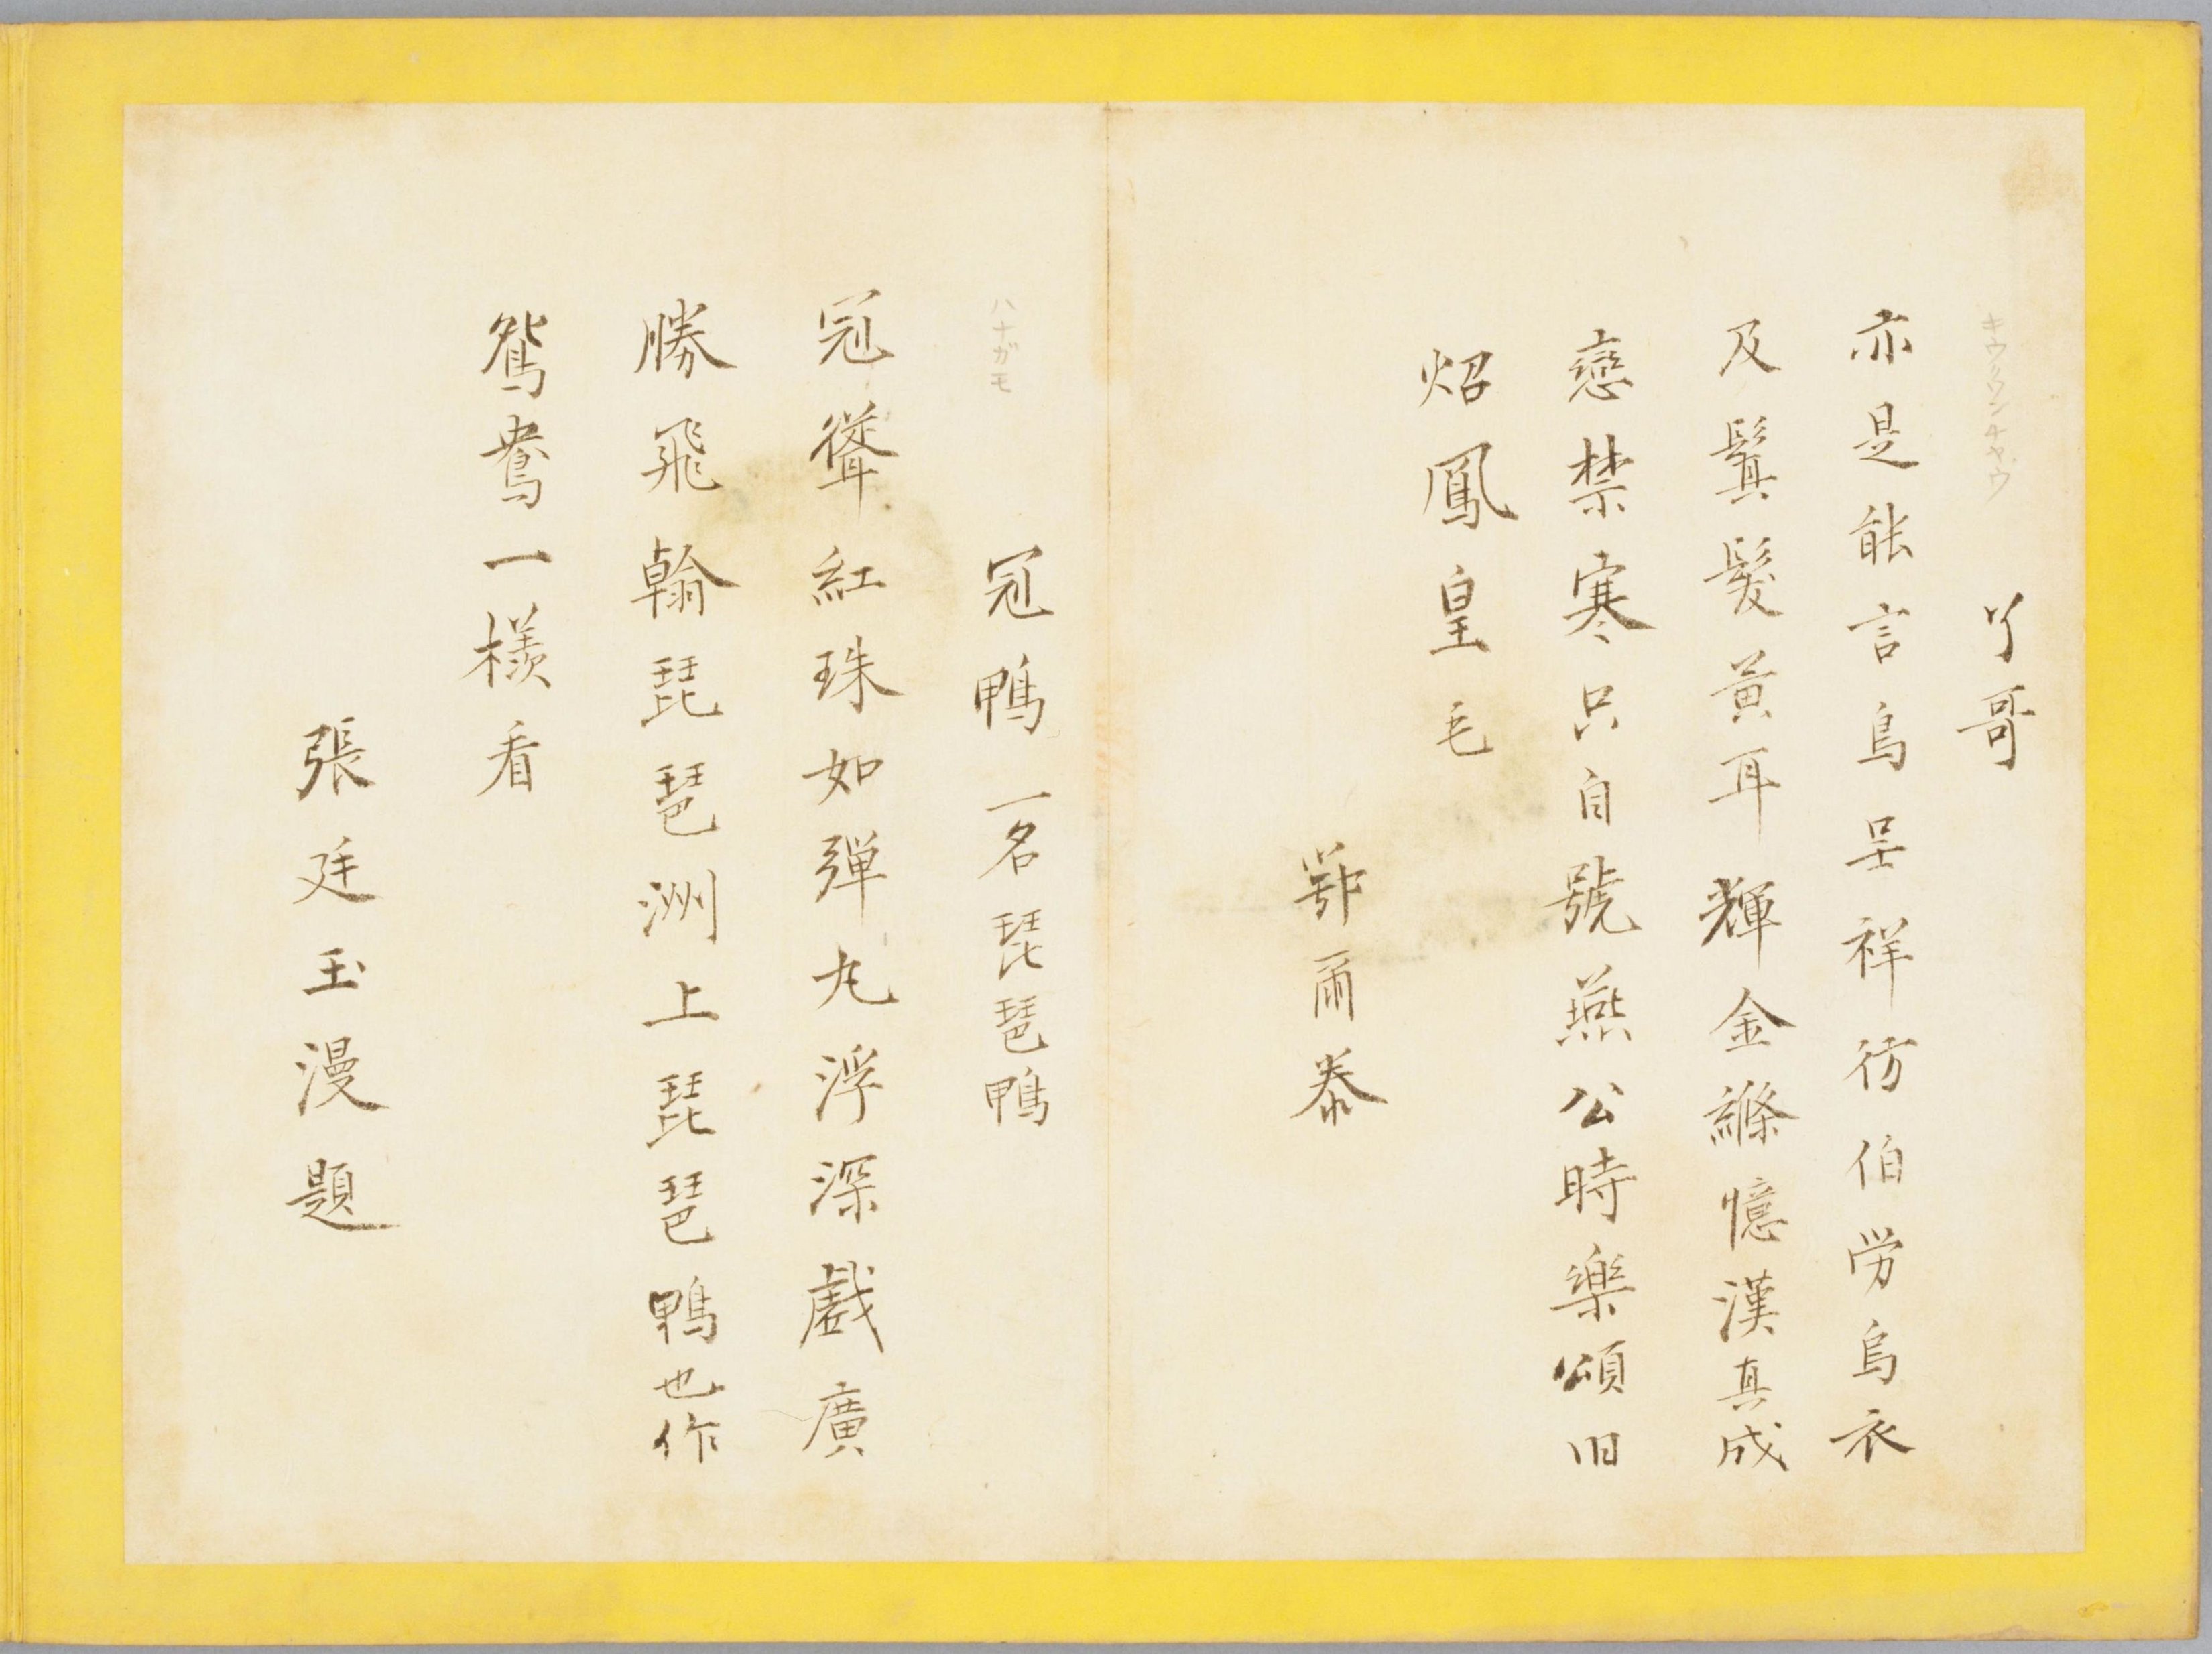 キウクワンチヤウ
丫哥
亦是能言鳥呈祥彷伯勞烏衣
及鬒髮黃耳輝金絛憶漢真成
戀禁寒只自號燕公時樂頌旧
炤鳳皇毛
鄂爾泰
ハナガモ
冠鴨一名琵琶鴨
冠聳紅珠如弾丸浮深戲廣
勝飛翰琵琶洲上琵琶鴨也作
鴛鴦一樣看
張廷玉漫題